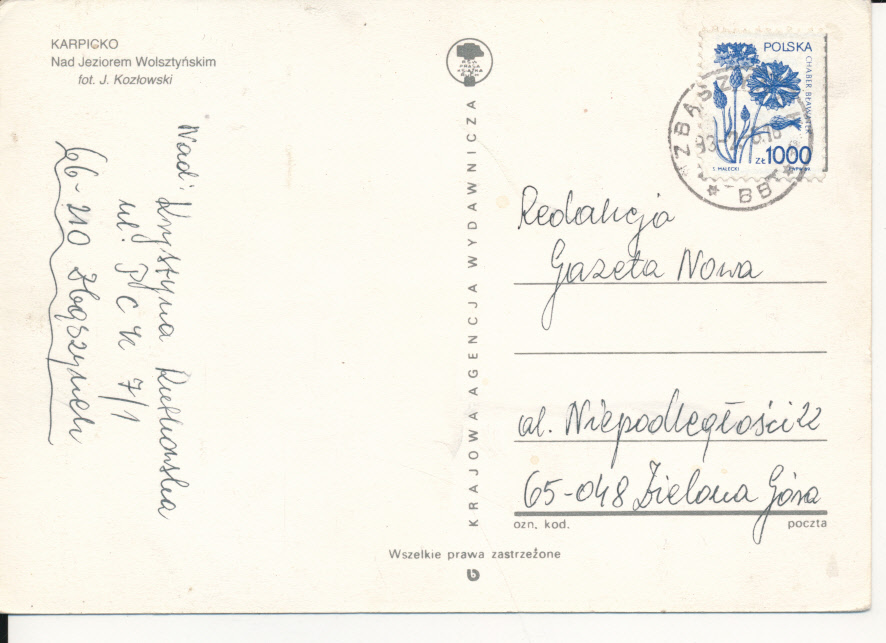 KARPICKO
Nad Jeziorem Wolsztyńskim
fot. J. Kozłowski
Nad: Krystyna Rutkowska
ul. PCK 7/1
66-210 Zbąszynek
KRAJOWA AGENCJA WYDAWNICZA
POLSKA
CHABER BŁAWATEK
ZŁ 1000
ZBĄSZ
93-2
BB
Redakcja
Gazeta Nowa
al. Niepodległości 22
65-048 Zielona Góra
ozn. kod. poczta
Wszelkie prawa zastrzeżone